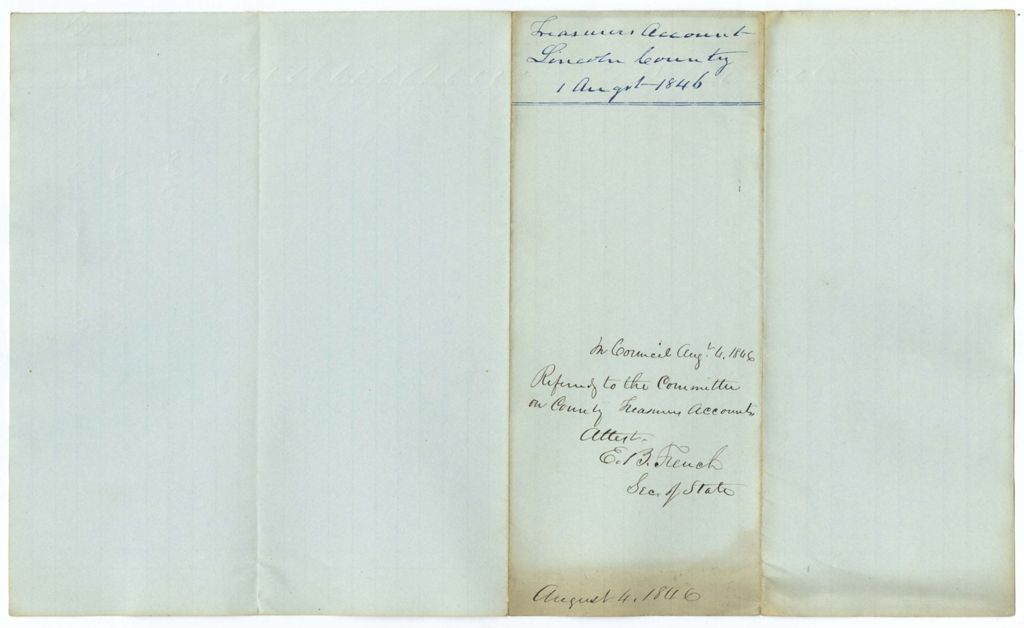 Treasurers Account
Lincoln County
1 Augst 1846
In Council Augt. 4, 1846
Referred to the Committee
on County Treasurers Accounts
Attest.
E. B. French
Sec. of State
August 4, 1846